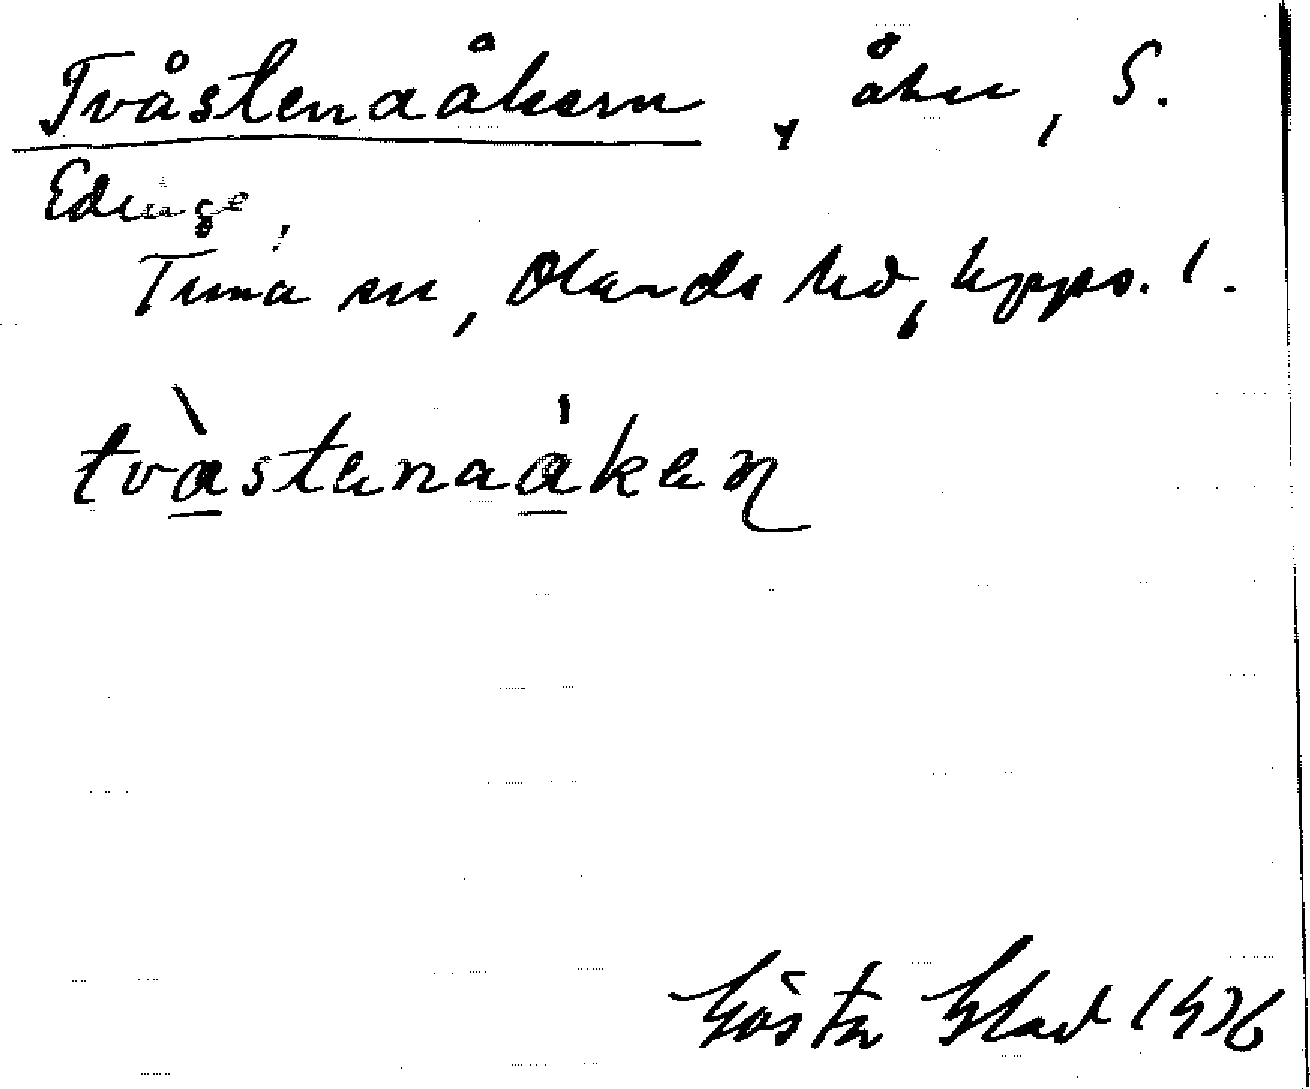 Tvåstenaåkern, åker, S.
Edinge,
Tuna sn, Olands hd, Upps. l.
tvåstenaåkeɳ
Gösta 1936